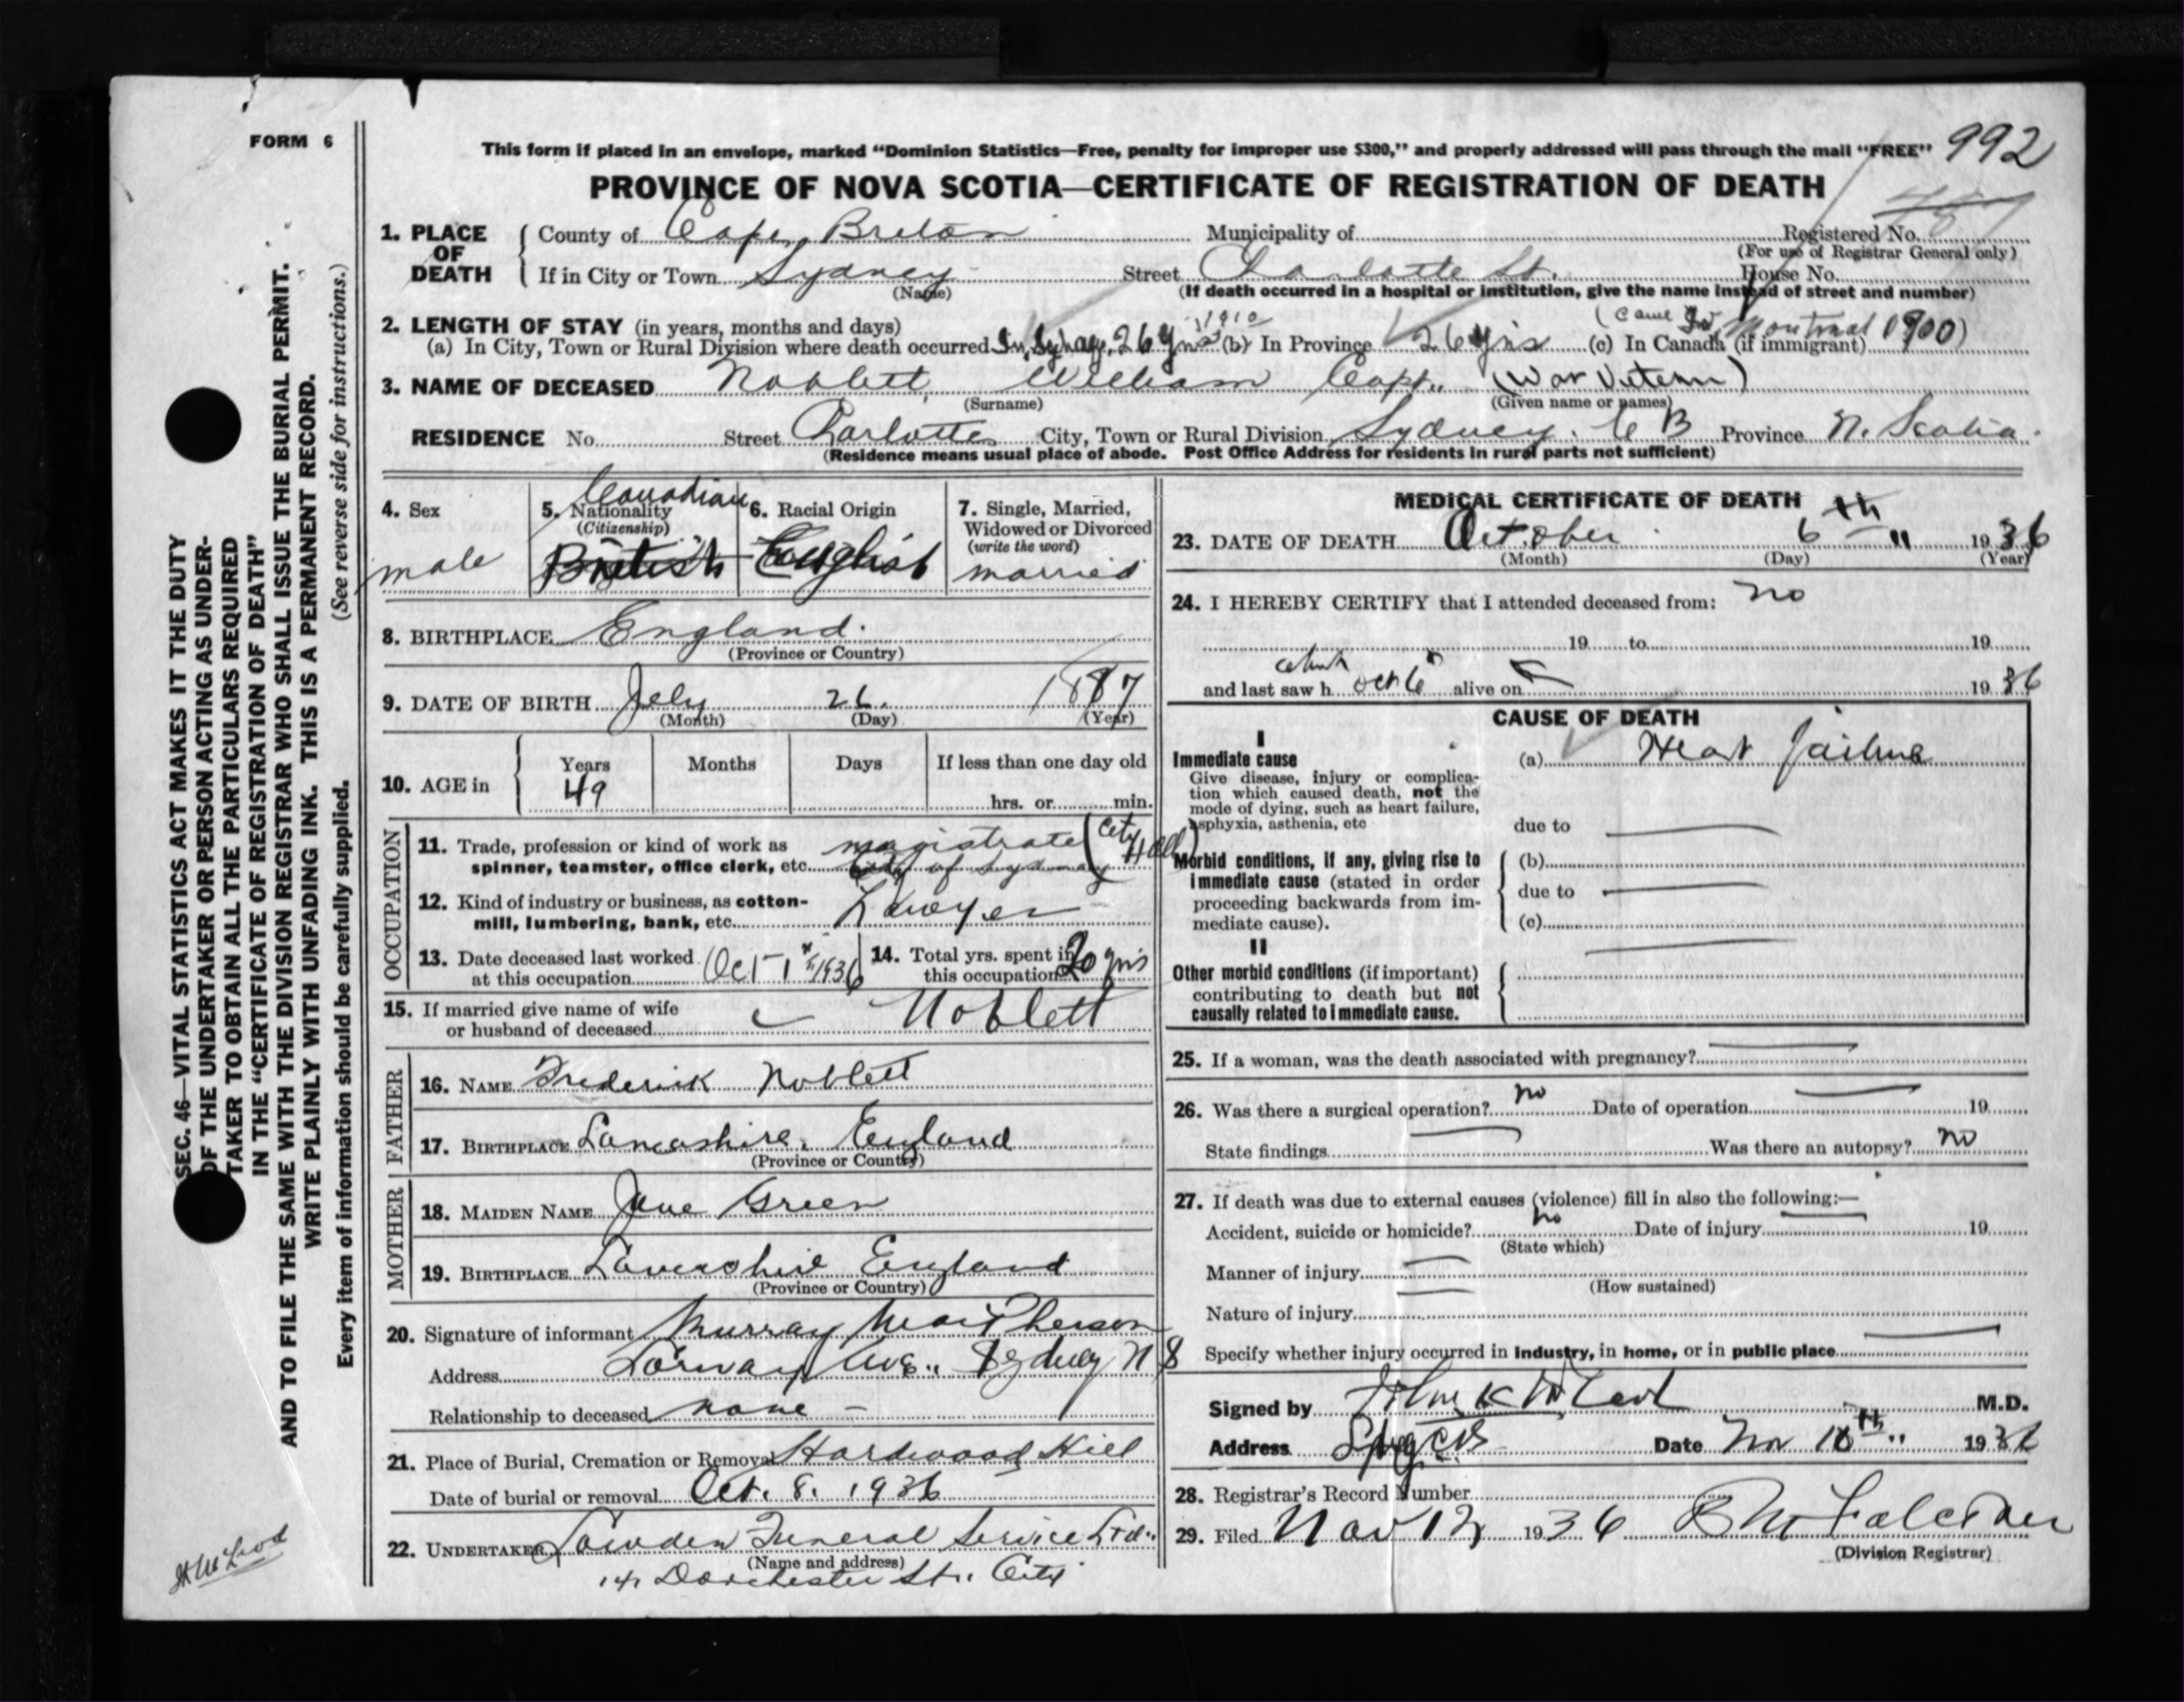 FORM 6
This form if placed in an envelope, marked “Dominion Statistics—Free, penalty for improper use $300,” and properly addressed will pass through the mail “FREE” 992
PROVINCE OF NOVA SCOTIA—CERTIFICATE OF REGISTRATION OF DEATH
1. PLACE OF DEATH
County of Cape Breton Municipality of Registered No.
(For use of Registrar General only)
If in City or Town Sydney Street Charlotte St. House No.
(Name) (If death occurred in a hospital or institution, give the name instead of street and number)
2. LENGTH OF STAY (in years, months and days) 1910 (came to Montreal 1900)
(a) In City, Town or Rural Division where death occurred In Sydney 26 yrs (b) In Province 26 yrs (c) In Canada (if immigrant)
3. NAME OF DECEASED Noblett, William Capt. (War Veteran)
(Surname) (Given name or names)
RESIDENCE No. Street Charlotte City, Town or Rural Division Sydney. C B Province N. Scotia.
(Residence means usual place of abode. Post Office Address for residents in rural parts not sufficient)
4. Sex
male
5. Nationality Canadian
(Citizenship)
British
6. Racial Origin
English
7. Single, Married, Widowed or Divorced
(write the word)
married
8. BIRTHPLACE England.
(Province or Country)
9. DATE OF BIRTH Jely 26. 1887
(Month) (Day) (Year)
10. AGE in Years Months Days If less than one day old
49 hrs. or min.
OCCUPATION
11. Trade, profession or kind of work as magistrate (City Hall)
spinner, teamster, office clerk, etc. City of Sydney
12. Kind of industry or business, as cotton-
mill, lumbering, bank, etc. Lawyer
13. Date deceased last worked
at this occupation Oct 1st 1936
14. Total yrs. spent in
this occupation 20 yrs
15. If married give name of wife
or husband of deceased Noblett
FATHER
16. NAME Frederick Noblett
17. BIRTHPLACE Lancashire, England
(Province or Country)
MOTHER
18. MAIDEN NAME Jane Green
19. BIRTHPLACE Lancashire England
(Province or Country)
20. Signature of informant Murray MacPherson
Address Lorway Ave., Sydney N S
Relationship to deceased none –
21. Place of Burial, Cremation or Removal Hardwood Hill
Date of burial or removal Oct. 8. 1936
22. UNDERTAKER Lowden Funeral Service Ltd.
(Name and address)
141 Dorchester St. City
MEDICAL CERTIFICATE OF DEATH
23. DATE OF DEATH October 6th 1936
(Month) (Day) (Year)
24. I HEREBY CERTIFY that I attended deceased from: no
19 to 19
and last saw h Oct 6 alive on 1936
CAUSE OF DEATH
I
Immediate cause
Give disease, injury or complica-
tion which caused death, not the
mode of dying, such as heart failure,
asphyxia, asthenia, etc
(a) Heart failure
due to
Morbid conditions, if any, giving rise to
immediate cause (stated in order
proceeding backwards from im-
mediate cause).
(b)
due to
(c)
II
Other morbid conditions (if important)
contributing to death but not
causally related to immediate cause.
25. If a woman, was the death associated with pregnancy?
26. Was there a surgical operation? no Date of operation 19
State findings Was there an autopsy? no
27. If death was due to external causes (violence) fill in also the following:—
Accident, suicide or homicide? no Date of injury 19
(State which)
Manner of injury
(How sustained)
Nature of injury
Specify whether injury occurred in industry, in home, or in public place
Signed by John K McLeod M.D.
Address Date Nov 10th 1936
28. Registrar's Record Number
29. Filed Nov 12 1936
(Division Registrar)
SEC. 46—VITAL STATISTICS ACT MAKES IT THE DUTY
OF THE UNDERTAKER OR PERSON ACTING AS UNDER-
TAKER TO OBTAIN ALL THE PARTICULARS REQUIRED
IN THE “CERTIFICATE OF REGISTRATION OF DEATH”
AND TO FILE THE SAME WITH THE DIVISION REGISTRAR WHO SHALL ISSUE THE BURIAL PERMIT.
WRITE PLAINLY WITH UNFADING INK. THIS IS A PERMANENT RECORD.
(See reverse side for instructions.)
Every item of information should be carefully supplied.